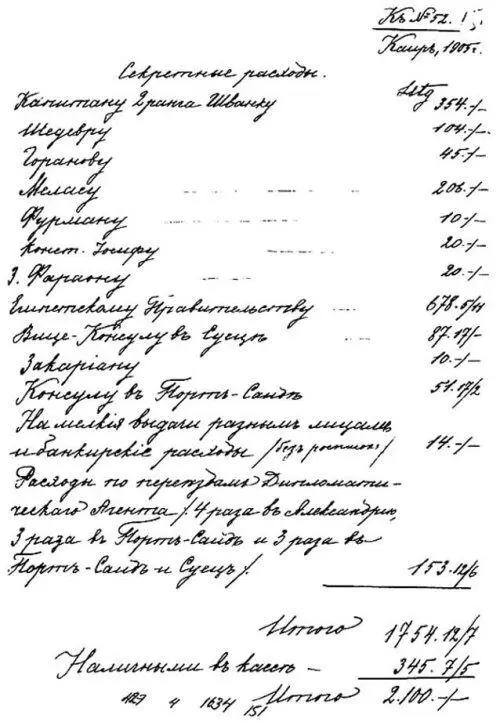 Къ № 52.
Каиръ, 1905 г.
Секретные расходы.
Lstg
Капитану 2 ранга Шванку 354.-/-
Шедевру 104.-/-
Горанову 45.-/-
Меласу 206.-/-
Фурману 10.-/-
Конст. Іосифу 20.-/-
З. Фараону 20.-/-
Египетскому Правительству 678.5/11
Вице-Консулу въ Суецѣ 87.17/-
Закаріану 10.-/-
Консулу въ Портъ-Саидѣ 51.17/2
На мелкія выдачи разнымъ лицамъ
и банкирскіе расходы /безъ росписокъ/ 14.-/-
Расходы по переѣздамъ Дипломати-
ческаго Агента / 4 раза въ Александрію,
3 раза въ Портъ-Саидъ и 3 раза въ
Портъ-Саидъ и Суецъ /. 153.12/6
Итого 1754.12/7
Наличными въ кассѣ - 345.7/5
Итого 2.100.-/-
4 1634 151